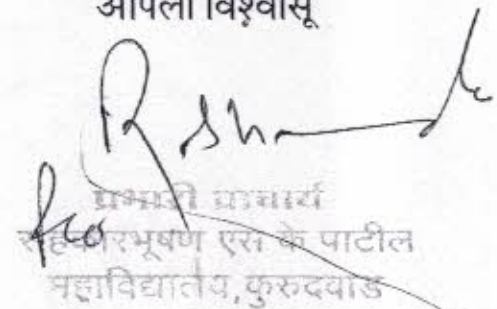 आपला विश्वासू
प्रभारी प्राचार्य
सहकारभूषण एस के पाटील
महाविद्यालय,कुरुंदवाड